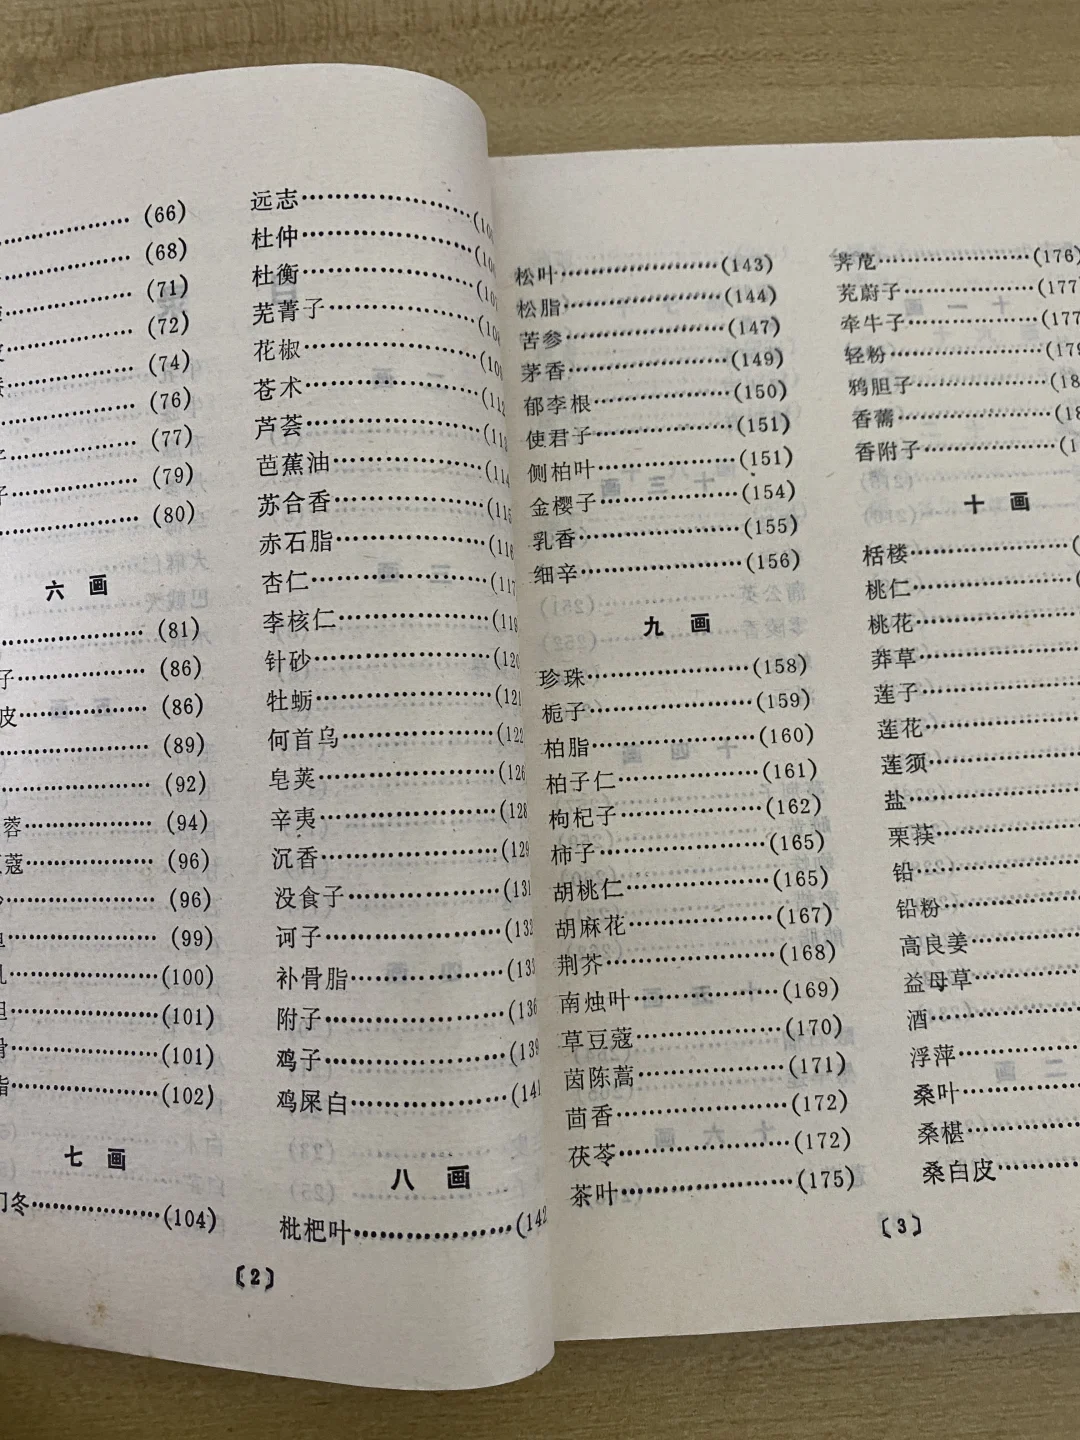 (66)
(68)
(71)
(72)
(74)
(76)
(77)
(79)
(80)
六画
(81)
子 (86)
皮 (86)
(89)
(92)
蓉 (94)
蔻 (96)
(96)
(99)
(100)
(101)
(101)
(102)
七画
冬 (104)
远志
杜仲
杜衡
芜菁子
花椒
苍术 (112
芦荟 (113
芭蕉油 (114
苏合香 (115
赤石脂 (116
杏仁 (117
李核仁 (118
针砂 (120
牡蛎 (121
何首乌 (122
皂荚 (126
辛夷 (128
沉香 (129
没食子 (131
诃子 (132
补骨脂 (133
附子 (136
鸡子 (139
鸡屎白 (141
八画
枇杷叶 (142
〔2〕
松叶 (143)
松脂 (144)
苦参 (147)
茅香 (149)
郁李根 (150)
使君子 (151)
侧柏叶 (151)
金樱子 (154)
乳香 (155)
细辛 (156)
九画
珍珠 (158)
栀子 (159)
柏脂 (160)
柏子仁 (161)
枸杞子 (162)
柿子 (165)
胡桃仁 (165)
胡麻花 (167)
荆芥 (168)
南烛叶 (169)
草豆蔻 (170)
茵陈蒿 (171)
茴香 (172)
茯苓 (172)
茶叶 (175)
荠苨 (176)
茺蔚子 (177)
牵牛子 (177
轻粉 (179
鸦胆子 (18
香薷 (18
香附子 (1
十画
栝楼
桃仁
桃花
莽草
莲子
莲花
莲须
盐
栗荴
铅
铅粉
高良姜
益母草
酒
浮萍
桑叶
桑椹
桑白皮
〔3〕